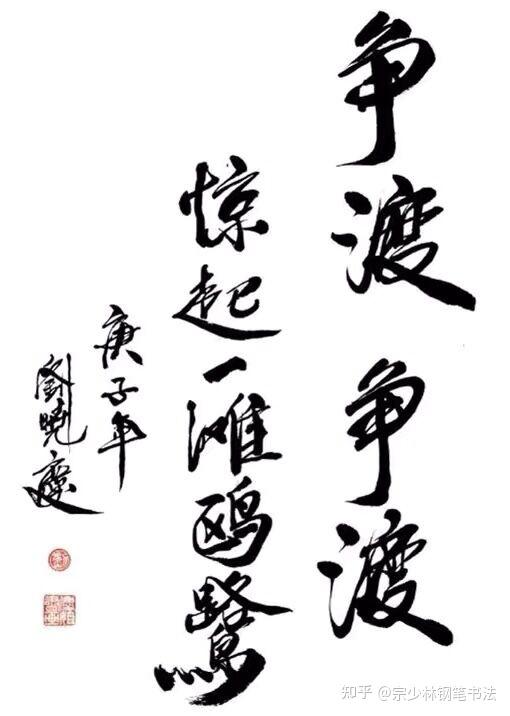 争渡争渡
惊起一滩鸥鹭
庚子年
劉曉慶
知乎 @宗少林钢笔书法